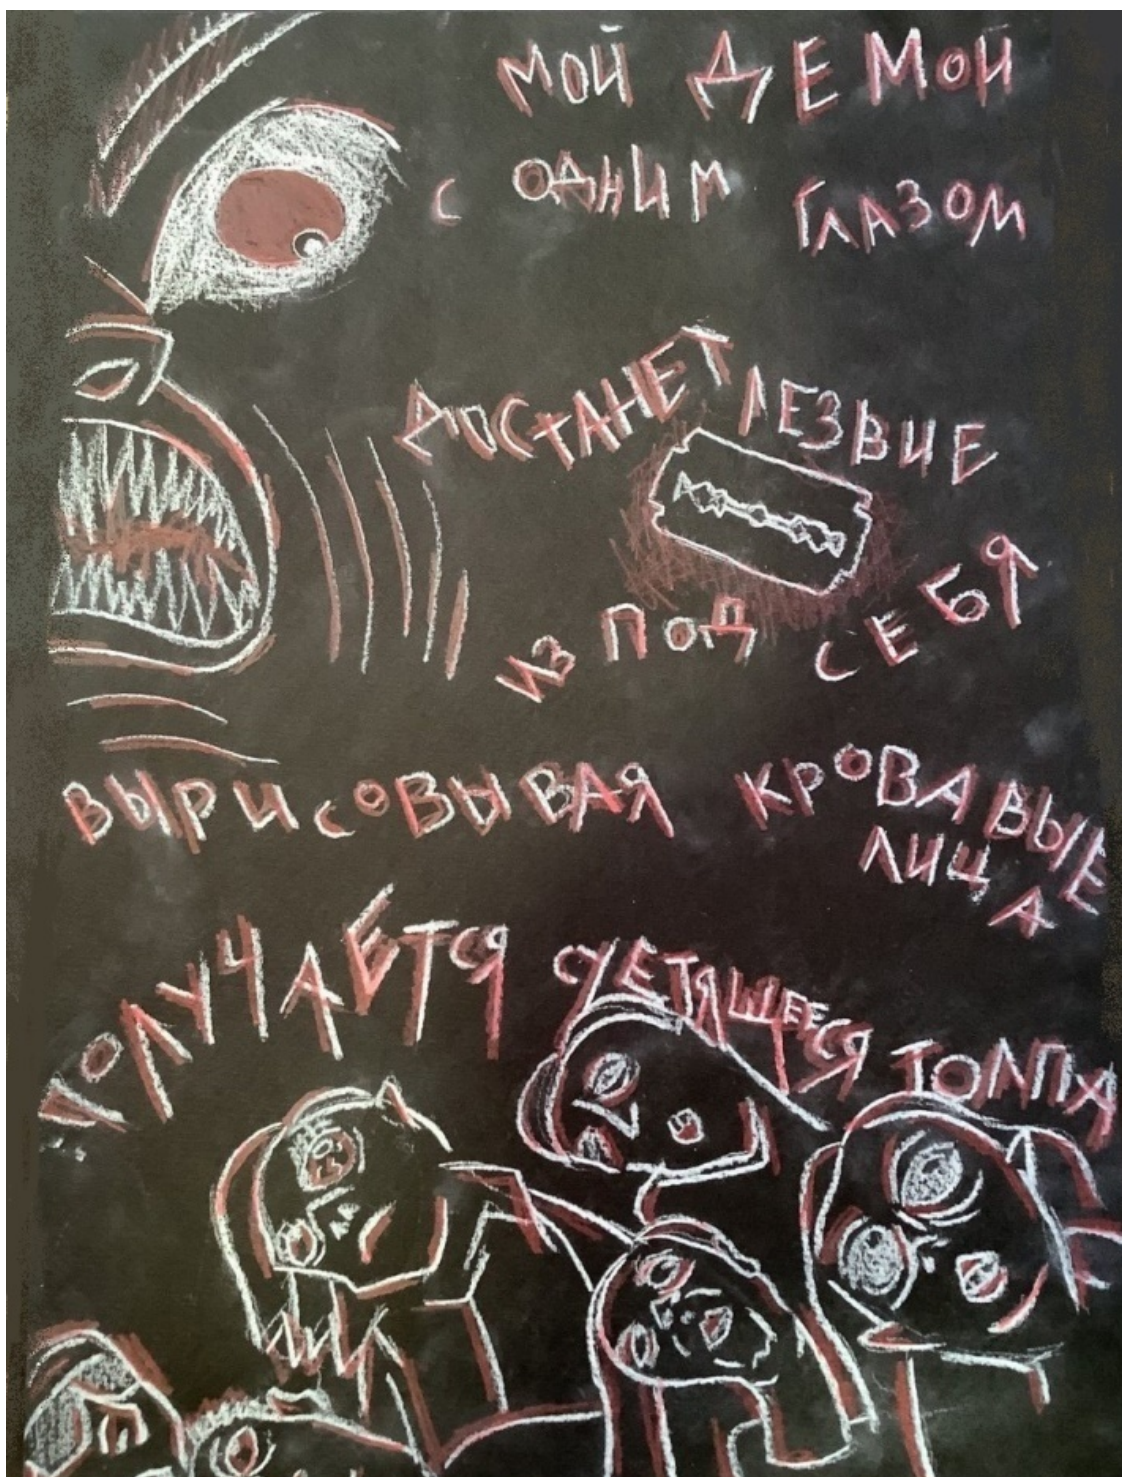 МОЙ ДЕМОН
С ОДНИМ ГЛАЗОМ
ДОСТАНЕТ ЛЕЗВИЕ
ИЗ ПОД СЕБЯ
ВЫРИСОВЫВАЯ КРОВАВЫЕ
ЛИЦА
ПОЛУЧАЕТСЯ СУЕТЯЩЕЕСЯ ТОЛПА